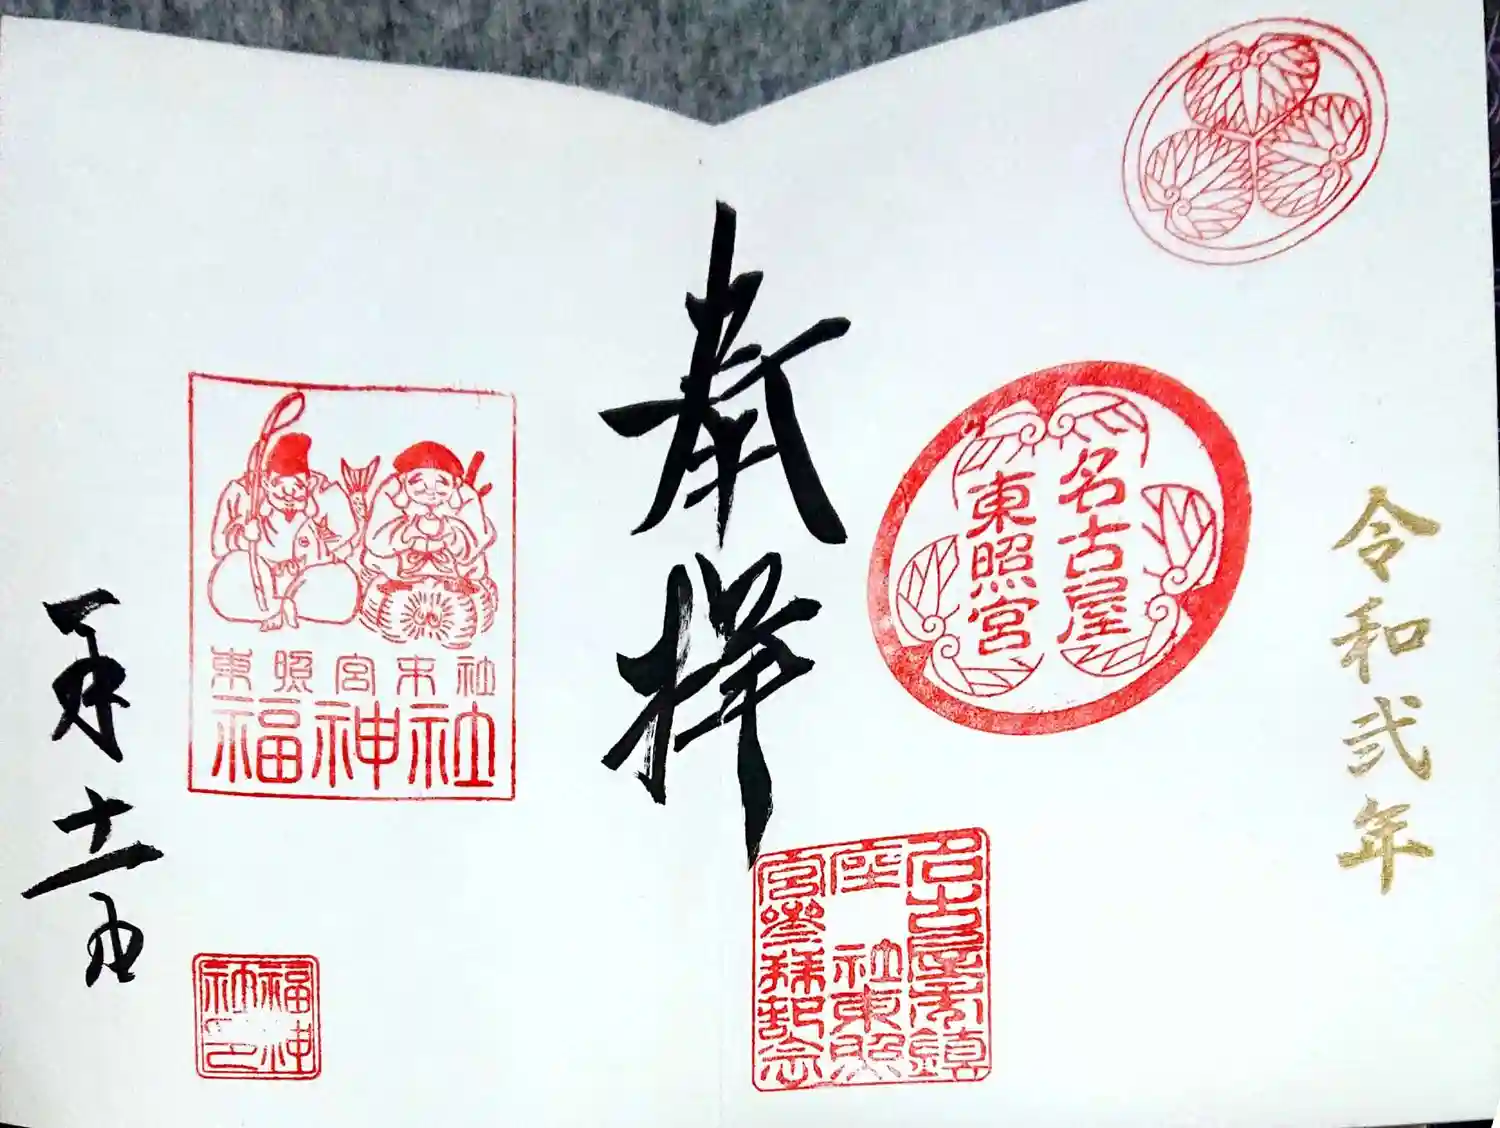 令和弐年
名古屋
東照宮
名古屋市鎮
座 社東照
宮参拝記念
奉拝
東照宮末社
福神社
福神
社印
十一日